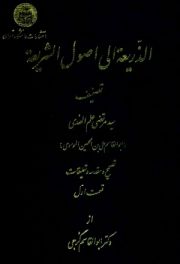 انتشارات دانشگاه تهران
الذریعة إلی اصول الشریعة
تصنیف
سید مرتضی علم الهدی
(ابوالقاسم علی بن الحسین الموسوی)
تصحیح و مقدمه و تعلیقات
قسمت اول
از
دکتر ابوالقاسم گرجی